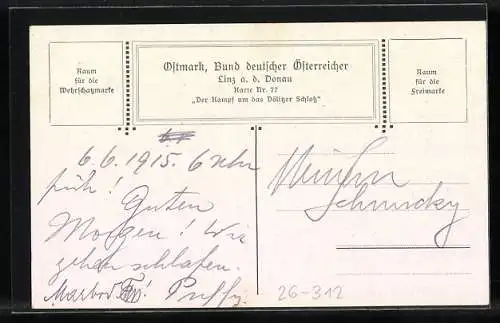 Raum
für die
Wehrschatzmarke
Ostmark, Bund deutscher Österreicher
Linz a. d. Donau
Karte Nr. 77
„Der Kampf um das Dölitzer Schloß“
Raum
für die
Freimarke
6.6.1915. 6 Uhr
früh!
Guten
Morgen! Wir
gehen schlafen.
Marbod! Puffy.
26-312